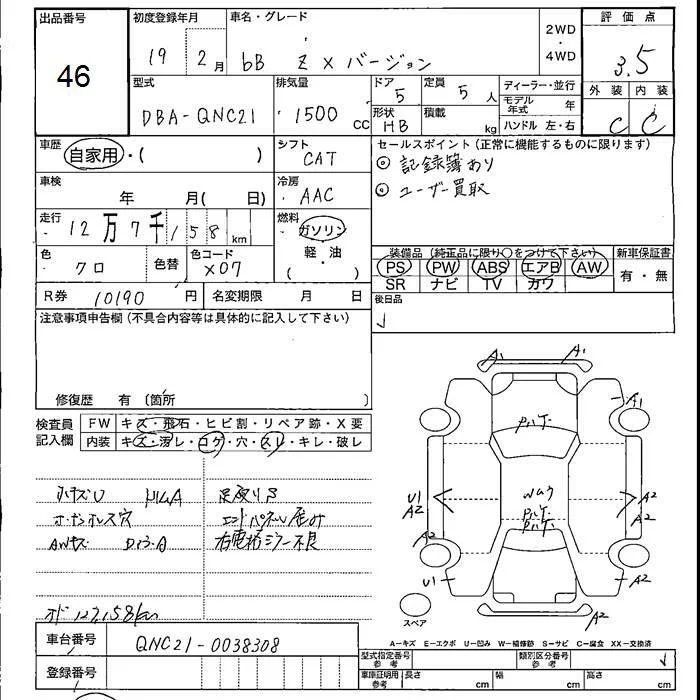 出品番号
46
初度登録年月
19 年 2 月
車名・グレード
bB Z X バージョン
2WD
・
4WD
評価点
3.5
外装 内装
C C
型式
DBA-QNC21
排気量
1500 CC
ドア 5
定員 5 人
形状 HB
積載 kg
ディーラー・並行
モデル年式 年
ハンドル 左・右
車歴
自家用・( )
シフト
CAT
セールスポイント (正常に機能するものに限ります)
◎ 記録簿あり
◎ ユーザー買取
車検
年 月( 日)
冷房
AAC
走行
12万7千158km
燃料
ガソリン
軽・油
( )
色
クロ
色替
色コード
X07
装備品 (純正品に限り○をつけて下さい)
PS PW ABS エアB AW
SR ナビ TV カワ
新車保証書
有・無
R券 10190 円
名変期限 月 日
後日品
注意事項申告欄 (不具合内容等は具体的に記入して下さい)
修復歴 有 (箇所 )
検査員記入欄
FW キズ・飛石・ヒビ割・リペア跡・X要
内装 キズ・汚レ・コゲ・穴・スレ・キレ・破レ
エンドパネル歪み
右電格ミラー不良
127,158km
A1 A1
A1
U1
A2
A2
A2
A2
A2
U1
A2
A2
スペア
A-キズ E-エクボ U-凹み W-補修跡 S-サビ C-腐食 XX-交換済
車台番号 QNC21-0038308
登録番号
型式指定番号 参考
類別区分番号 参考
車庫証明用 参考
長さ cm
幅 cm
高さ cm